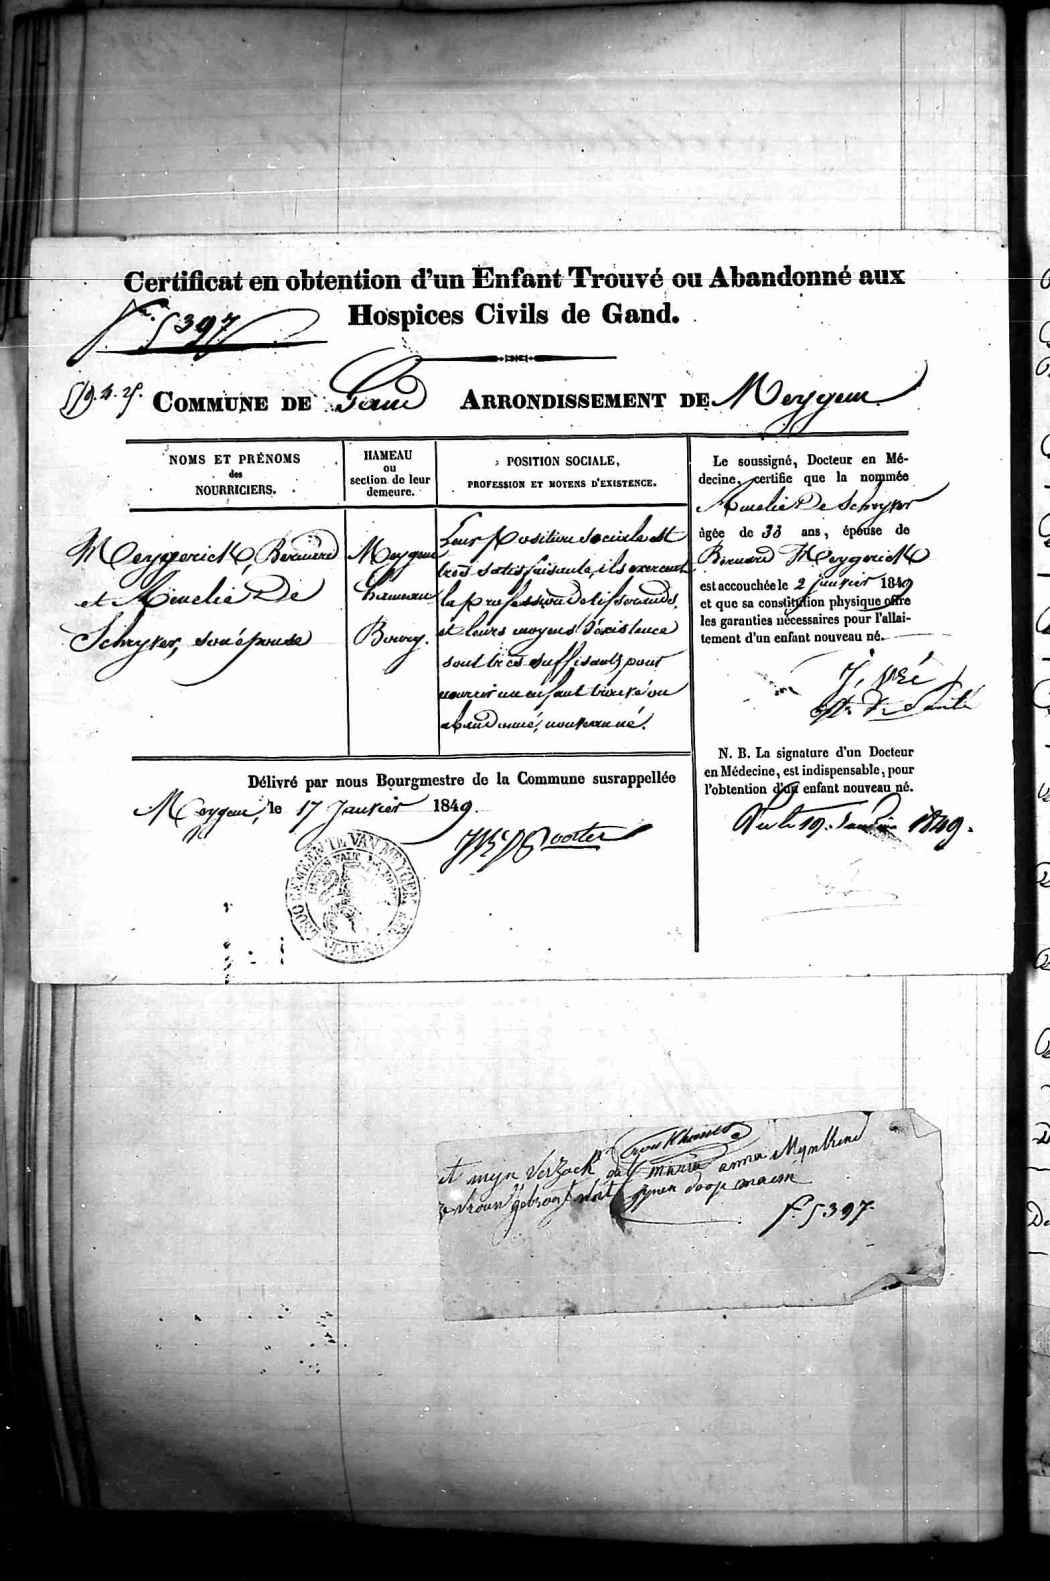 Certificat en obtention d'un Enfant Trouvé ou Abandonné aux
Hospices Civils de Gand.
5397
COMMUNE DE Gand ARRONDISSEMENT DE Meygem
NOMS ET PRÉNOMS
des
NOURRICIERS.
Meygerick, Bernard
et Amelie De
Schryver, son épouse
HAMEAU
ou
section de leur
demeure.
Meygem
hameau
POSITION SOCIALE,
PROFESSION ET MOYENS D'EXISTENCE.
Leur position sociale est
très satisfaisante, ils exercent
la profession de tisserands,
et leurs moyens d'existence
sont très suffisants pour
nourrir un enfant trouvé ou
abandonné, nouveau né.
Le soussigné, Docteur en Mé-
decine, certifie que la nommée
Amelie De Schryver
âgée de 33 ans, épouse de
Bernard Meygerick
est accouchée le 2 janvier 1849
et que sa constitution physique offre
les garanties nécessaires pour l'allai-
tement d'un enfant nouveau né.
N. B. La signature d'un Docteur
en Médecine, est indispensable, pour
l'obtention d'un enfant nouveau né.
Vu le 19 Janvier 1849.
Délivré par nous Bourgmestre de la Commune susrappellée
Meygem, le 17 Janvier 1849.
GEMEENTE VAN MEYGEM
myn verzoek dat maria anna
doop naem
f. 5397.